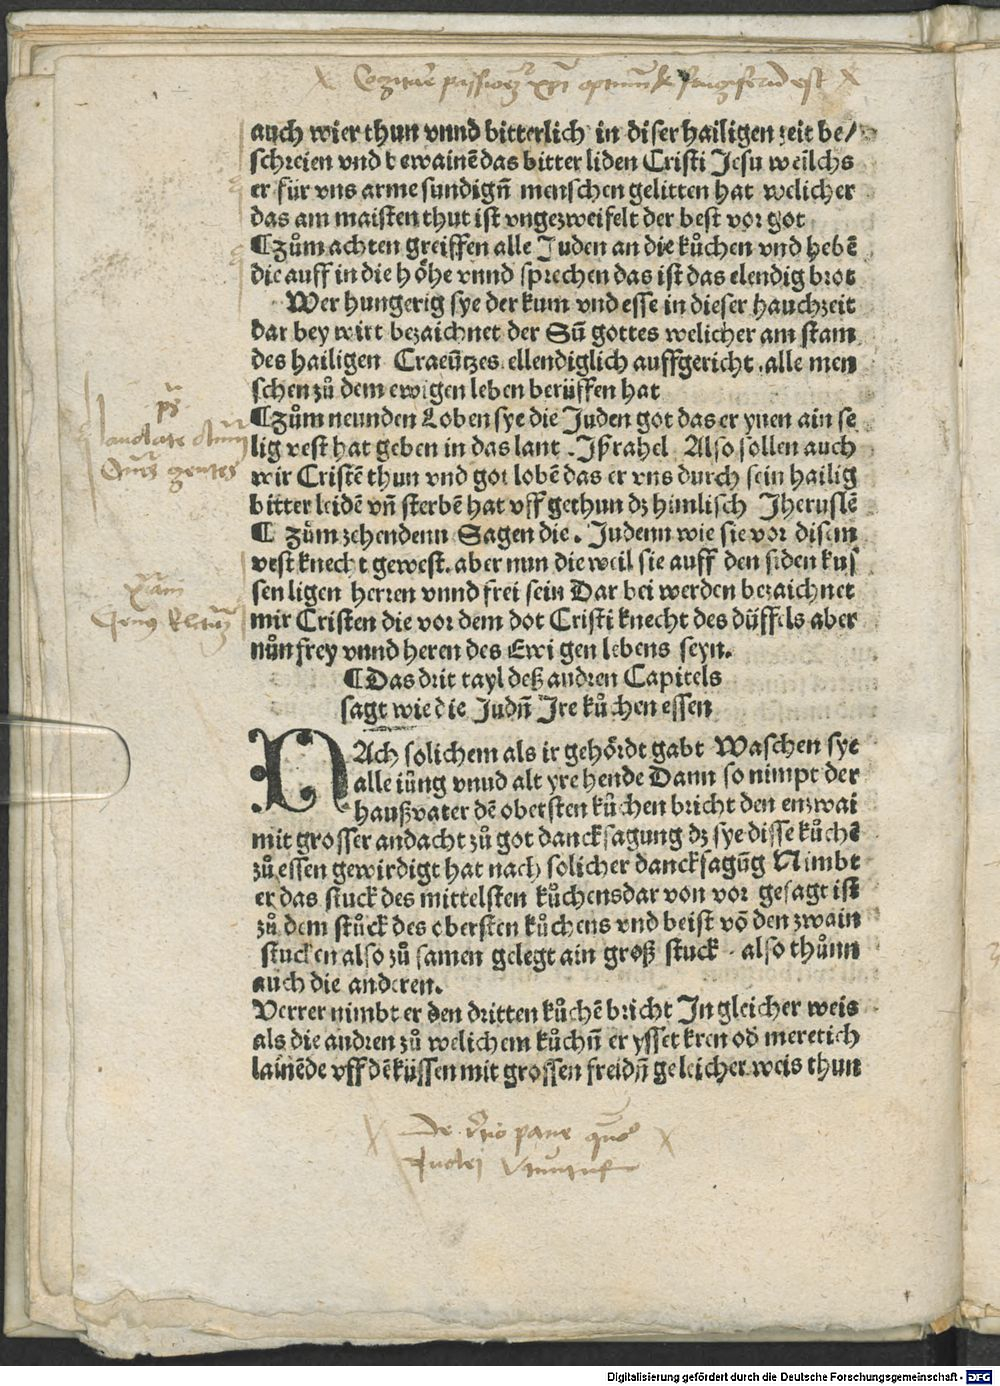 Cogitare passionem xpi optimum & frugiferum est
auch wier thun vnnd bitterlich in diser hailigen zeit be/
schreien vnd bewainē das bitter liden Cristi Jesu weilchs
er für vns arme sundign̄ menschen gelitten hat welicher
das am maisten thut ist vngezweifelt der best vor got
¶ Zům achten greiffen alle Juden an die kůchen vnd hebē
die auff in die höhe vnnd sprechen das ist das elendig brot
Wer hungerig sye der kum vnd esse in dieser hauchzeit
dar bey wirt bezaichnet der Sū gottes welicher am stam
des hailigen Craeūtzes ellendiglich auffgericht .alle men
schen zů dem ewigen leben berüffen hat
¶ Zům neunden Loben sye die Juden got das er ynen ain se
lig vest hat geben in das lant .Jßrahel Also sollen auch
wir Cristē thun vnd got lobē das er vns durch sein hailig
bitter leidē vn̄ sterbē hat vff gethun dz himlisch Jheruslē
¶ Zům zehendenn Sagen die. Judenn wie sie vor disem
vest knecht gewest. aber nun die weil sie auff den siden kus
sen ligen herren vnnd frei sein Dar bei werden bezaichnet
mir Cristen die vor dem dot Cristi knecht des düffels aber
nůn frey vnnd heren des Ewi gen lebens seyn.
¶ Das drit tayl deß andren Capitels
sagt wie die Judn̄ Jre kůchen essen
NAch solichem als ir gehördt gabt Waschen sye
alle iūng vnud alt yre hende Dann so nimpt der
haußvater dē obersten kůchen bricht den enzwai
mit grosser andacht zů got dancksagung dz sye disse kůchē
zů essen gewirdigt hat nach solicher dancksagūg Nimbt
er das stuck des mittelsten kůchens dar von vor gesagt ist
zů dem stůck des obersten kůchens vnd beist vō den zwain
stucken also zů samen gelegt ain groß stuck . also thůnn
auch die anderen.
Verrer nimbt er den dritten kůchē bricht Jn gleicher weis
als die andren zů welichem kůchn̄ er ysset kren od̄ meretich
lainēde vff dē küssen mit grossen freidn̄ geleicher weis thun
ps
laudate dnm
Oms gentes
De pane quo
Judei vtuntur
Digitalisierung gefördert durch die Deutsche Forschungsgemeinschaft - DFG